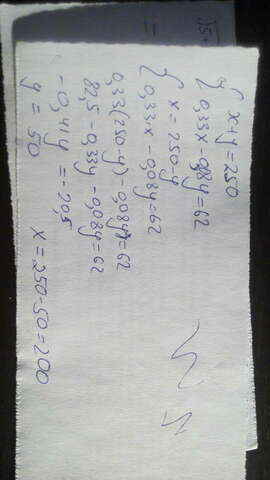 x+y=250
0,33x-0,08y=62
x=250-y
0,33x-0,08y=62
0,33(250-y)-0,08y=62
82,5-0,33y-0,08y=62
-0,41y=-20,5
y=50 x=250-50=200